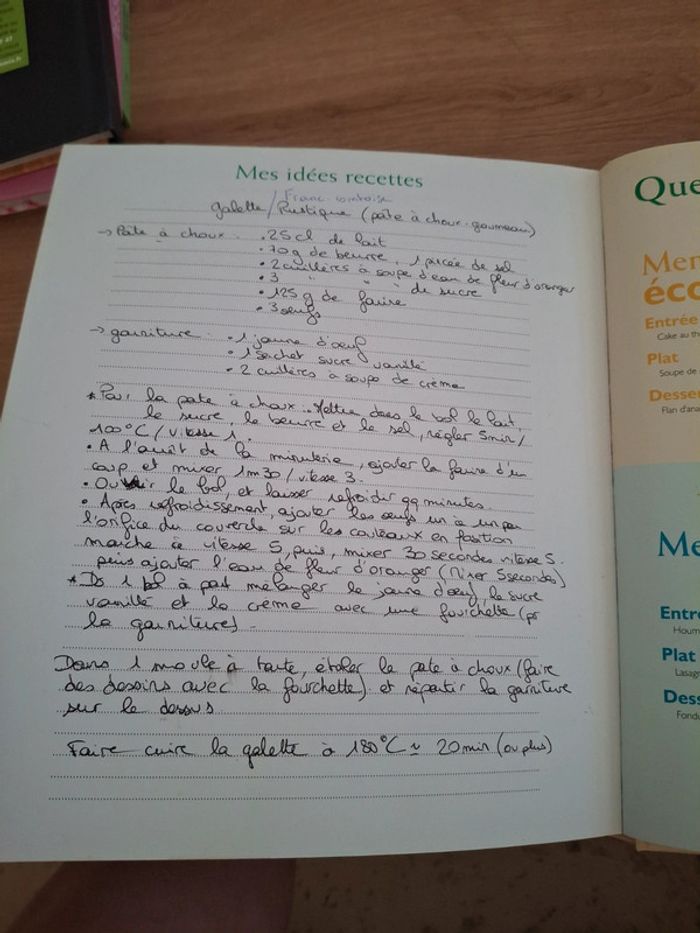 Mes idées recettes
Franc-comtoise
galette / Rustique (pâte à choux-goumeau)
→ Pâte à choux : • 25 cl de lait
• 70 g de beurre, 1 pincée de sel
• 2 cuillères à soupe d'eau de fleur d'oranger
• 3 " " de sucre
• 125 g de farine
• 3 oeufs
→ garniture : • 1 jaune d'oeuf
• 1 sachet sucre vanillé
• 2 cuillères à soupe de crème
* Pour la pate à choux : Mettre dans le bol le lait,
le sucre, le beurre et le sel, régler 5min/
100°C / vitesse 1.
• A l'arrêt de la minuterie, ajouter la farine d'un
coup et mixer 1m30 / vitesse 3.
• Ouvrir le bol, et laisser refroidir qq minutes.
• Après refroidissement, ajouter les oeufs un à un par
l'orifice du couvercle sur les couteaux en position
marche à vitesse 5, puis, mixer 30 secondes vitesse 5.
puis ajouter l'eau de fleur d'oranger (Mixer 5secondes)
* Ds 1 bol à part mélanger le jaune d'oeuf, le sucre
vanillé et la crème avec une fourchette (pr
la garniture).
Dans 1 moule à tarte, étaler la pate à choux (faire
des dessins avec la fourchette) et répartir la garniture
sur le dessus
Faire cuire la galette à 180°C ≃ 20min (ou plus)
Que
Men
éco
Entrée
Cake au th
Plat
Soupe de
Desser
Flan d'ana
Me
Entré
Houm
Plat
Lasag
Dess
Fondu